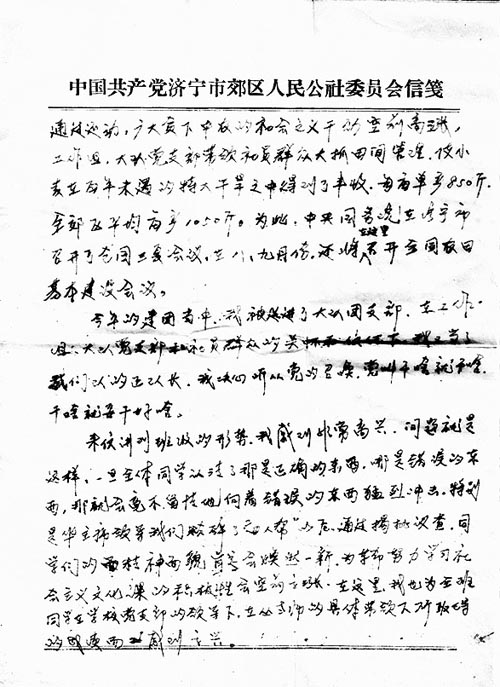 中国共产党济宁市郊区人民公社委员会信笺
通过运动，广大贫下中农的社会主义干劲空前高涨，
工作组、大队党支部带领社员群众大抓田间管理，使小
麦在百年未遇的特大干旱之中得到了丰收，每亩单产850斤，
全部平均亩产1050斤。为此，中央国务院在济宁市
召开了全国会议，在八、九月份，还将在这里召开全国农田
基本建设会议。
今年的建团当中，我被选进了大队团支部，在工作
组、大队党支部和社员群众的关怀和信任下，我又当了
我们队的队长，我决心听从党的召唤，党叫干啥就干啥，
干啥就要干好啥。
来信讲到班级的形势，我感到非常高兴，问题就是
这样，一旦全体同学认清了那是正确的东西，那是错误的东
西，那就会毫不留情地向着错误的东西猛烈冲击。特别
是华主席领导我们粉碎了“四人帮”以后，通过揭批议查，同
学们的精神面貌会焕然一新，为革命努力学习社
会主义文化课的积极性会空前高涨。在这里，我也为全班
同学在学校党支部的领导下，在老师的具体带领下所取得
的成绩而感到高兴。